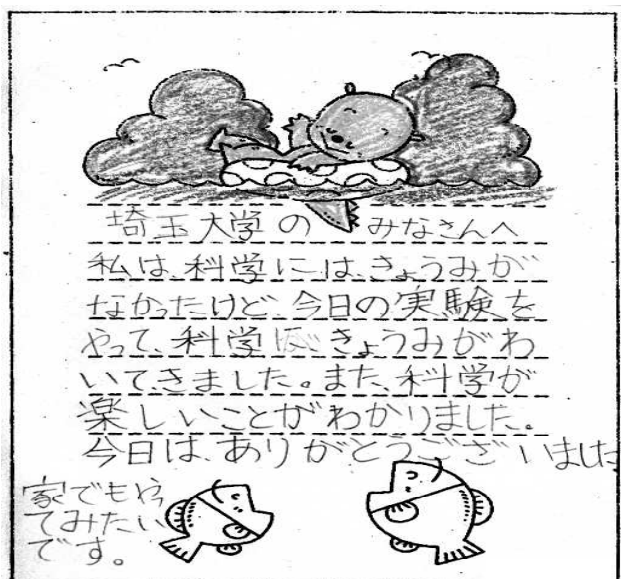 埼玉大学の みなさんへ
私は、科学には、きょうみが
なかったけど、今日の実験を
やって、科学にきょうみがわ
いてきました。また、科学が
楽しいことがわかりました。
今日は、ありがとうございました
家でもやっ
てみたい
です。